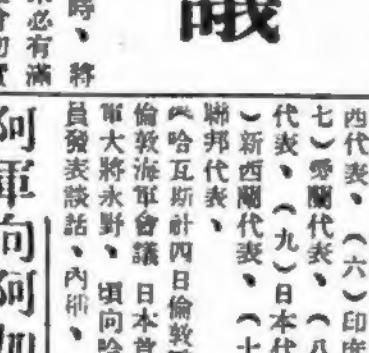 時、將
必有滿
西代表、(六)印度
七)愛蘭代表、(八
代表、(九)日本代
)新西蘭代表、(十
聯邦代表、
(哈瓦斯社四日倫敦
倫敦海軍會議 日本首
軍大將永野、頃向哈
員發表談話、內稱、
阿軍向阿加